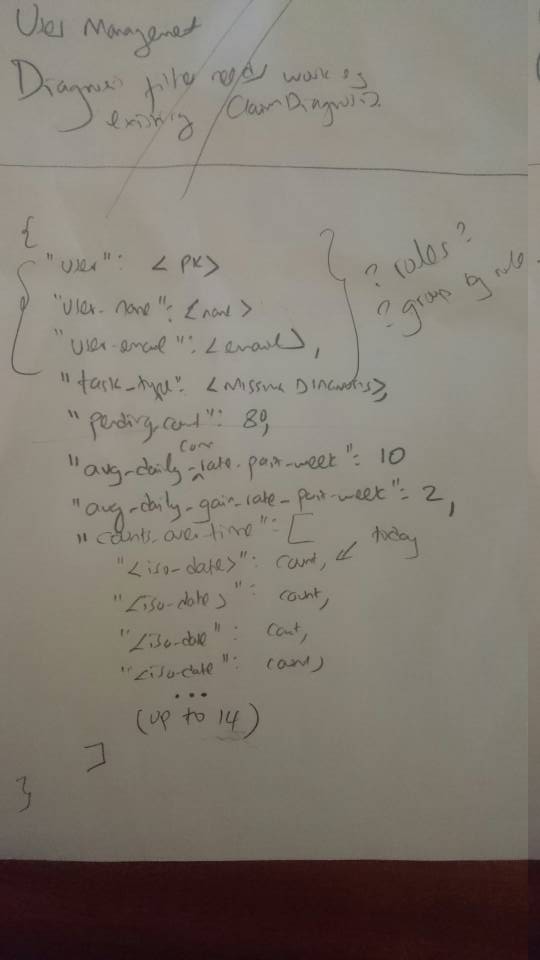 User Management
Diagnosis filter needs work eg
existing ClaimDiagnosis
{
"user": <PK>
"user-name": <name>
"user-email": <email>,
"task_type": <Missing Diagnosis>,
"pending_count": 80,
"avg-daily-com-rate-past-week": 10
"avg-daily-gain-rate-past-week": 2,
"counts_over-time": [
"<iso-date>": count, ← today
"<iso-date>" count,
"<iso-date": count,
"<iso-date": count,
...
(up to 14)
]
}
? roles ?
? group by role